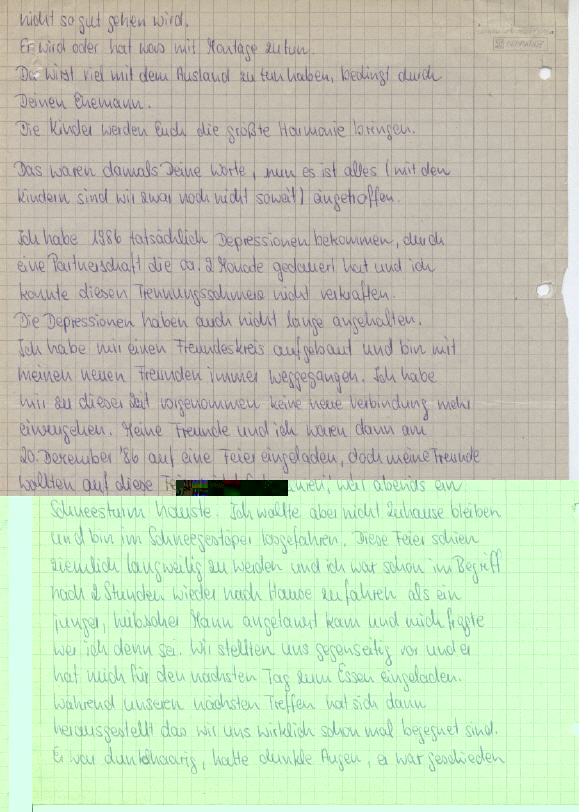 nicht so gut gehen wird.
Er wird oder hat was mit Montage zu tun.
Du wirst viel mit dem Ausland zu tun haben, bedingt durch
Deinen Ehemann.
Die Kinder werden Euch die größte Harmonie bringen.
Das waren damals Deine Worte, nun es ist alles (mit den
Kindern sind wir zwar noch nicht soweit) angetroffen.
Ich habe 1986 tatsächlich Depressionen bekommen, durch
eine Partnerschaft die ca. 2 Monate gedauert hat und ich
konnte diesen Trennungsschmerz nicht verkraften.
Die Depressionen haben auch nicht lange angehalten.
Ich habe mir einen Freundeskreis aufgebaut und bin mit
meinen neuen Freunden immer weggegangen. Ich habe
mir zu dieser Zeit vorgenommen keine neue Verbindung mehr
einzugehen. Meine Freunde und ich waren dann am
20. Dezember '86 auf eine Feier eingeladen, doch meine Freunde
wollten auf diese weil abends ein
Schneesturm hauste. Ich wollte aber nicht zuhause bleiben
und bin im Schneegestöper losgefahren. Diese Feier schien
ziemlich langweilig zu werden und ich war schon im Begriff
nach 2 Stunden wieder nach Hause zu fahren als ein
junger, hübscher Mann angetanzt kam und mich fragte
wer ich denn sei. Wir stellten uns gegenseitig vor und er
hat mich für den nächsten Tag zum Essen eingeladen.
Während unseren nächsten Treffen hat sich dann
herausgestellt das wir uns wirklich schon mal begegnet sind.
Er war dunkelhaarig, hatte dunkle Augen, er war geschieden